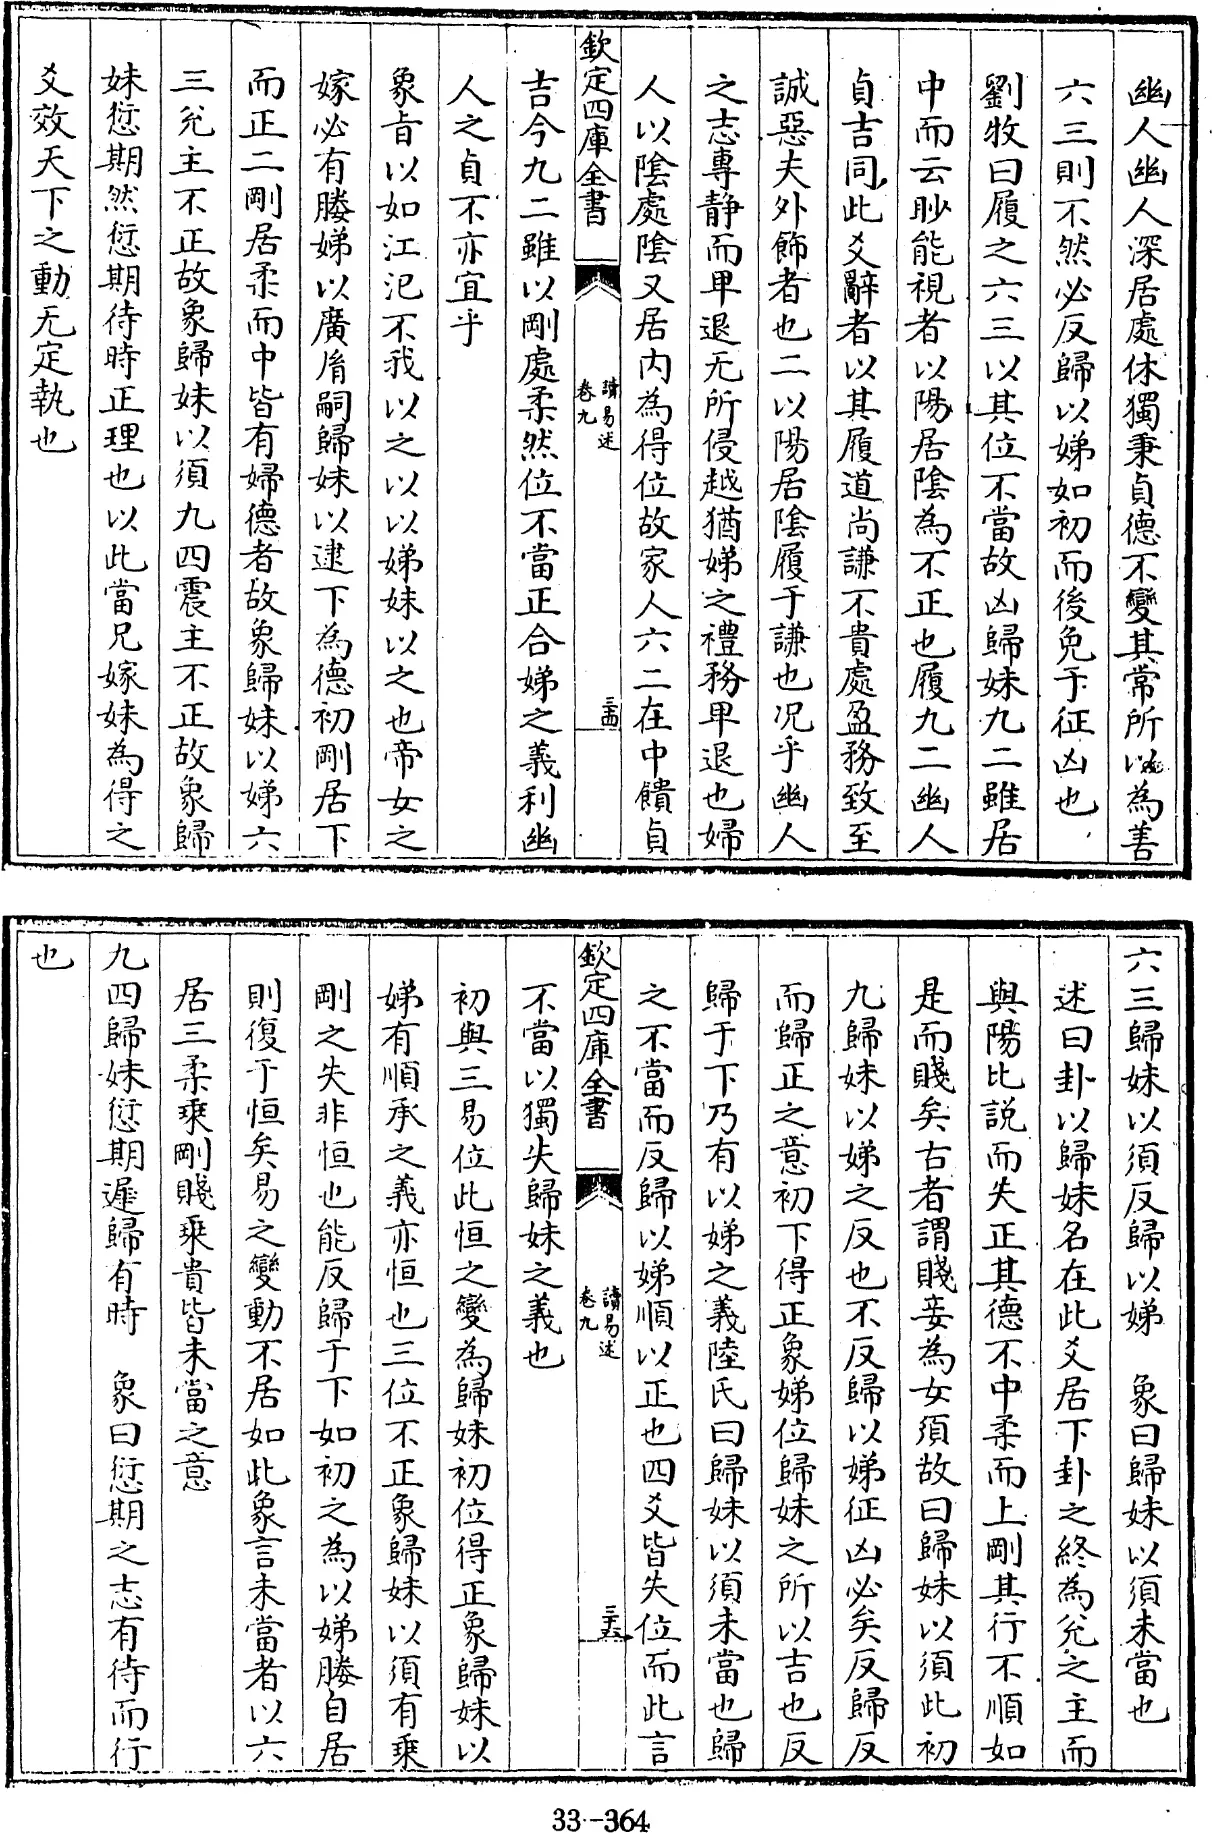 幽人幽人深居處休獨秉貞德不變其常所以為善
六三則不然必反歸以娣如初而後免于征凶也
劉牧曰履之六三以其位不當故凶歸妹九二雖居
中而云眇能視者以陽居陰為不正也履九二幽人
貞吉同此爻辭者以其履道尚謙不貴處盈務致至
誠惡夫外飾者也二以陽居陰履于謙也况乎幽人
之志專靜而卑退无所侵越猶娣之禮務卑退也婦
人以陰處陰又居内為得位故家人六二在中饋貞
欽定四庫全書
讀易述
卷九
三四
吉今九二雖以剛處柔然位不當正合娣之義利幽
人之貞不亦宜乎
象旨以如江汜不我以之以以娣妹以之也帝女之
嫁必有媵娣以廣胤嗣歸妹以逮下為德初剛居下
而正二剛居柔而中皆有婦德者故象歸妹以娣六
三兊主不正故象歸妹以須九四震主不正故象歸
妹愆期然愆期待時正理也以此當兄嫁妹為得之
爻效天下之動无定執也
六三歸妹以須反歸以娣 象曰歸妹以須未當也
述曰卦以歸妹名在此爻居下卦之終為兊之主而
與陽比説而失正其德不中柔而上剛其行不順如
是而賤矣古者謂賤妾為女須故曰歸妹以須此初
九歸妹以娣之反也不反歸以娣征凶必矣反歸反
而歸正之意初下得正象娣位歸妹之所以吉也反
歸于下乃有以娣之義陸氏曰歸妹以須未當也歸
之不當而反歸以娣順以正也四爻皆失位而此言
欽定四庫全書
讀易述
卷九
三五
不當以獨失歸妹之義也
初與三易位此恒之變為歸妹初位得正象歸妹以
娣有順承之義亦恒也三位不正象歸妹以須有乘
剛之失非恒也能反歸于下如初之為以娣媵自居
則復于恒矣易之變動不居如此象言未當者以六
居三柔乘剛賤乘貴皆未當之意
九四歸妹愆期遲歸有時 象曰愆期之志有待而行
也
33-364